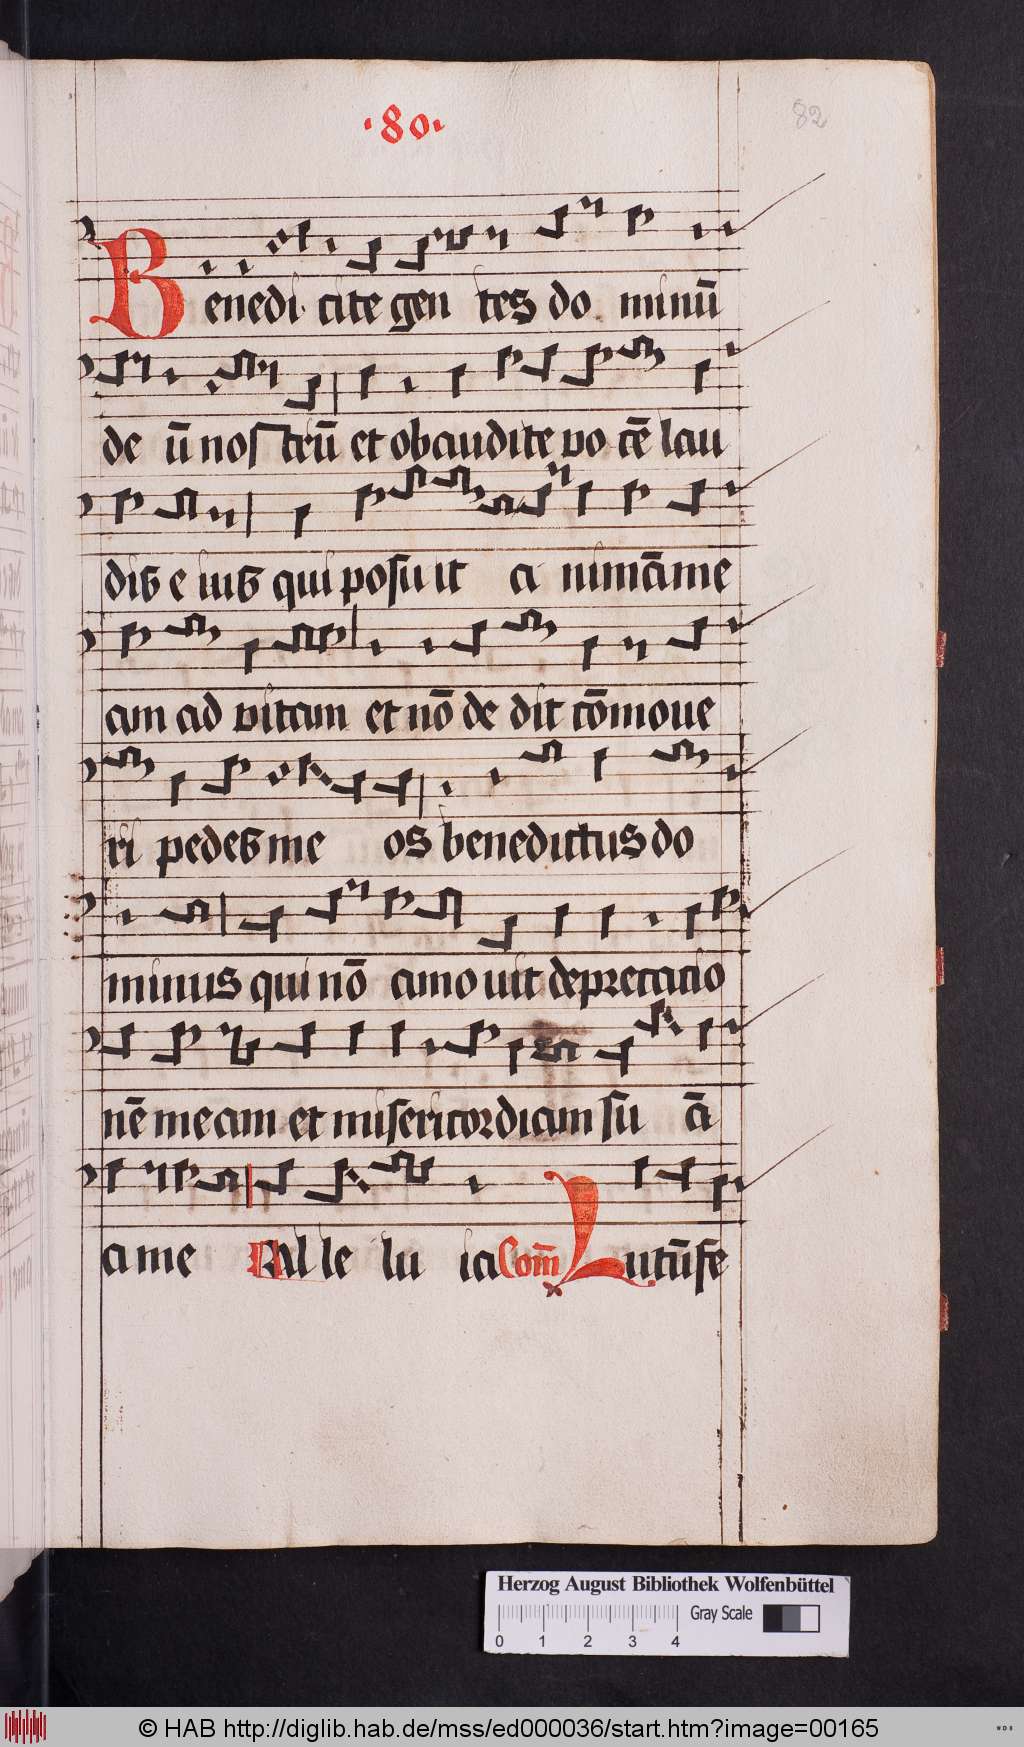 ·80·
82
Benedi cite gen tes do minū
de ū nos trū et obaudite vo cē lau
dis e ius qui posu it a nimā me
am ad vitam et nō de dit cōmoue
ri pedes me os benedictus do
minus qui nō amo uit deprecatio
nē meam et misericordiam su ā
a me Al le lu ia Com̄ Lutū fe
Herzog August Bibliothek Wolfenbüttel
Gray Scale
0 1 2 3 4
© HAB http://diglib.hab.de/mss/ed000036/start.htm?image=00165